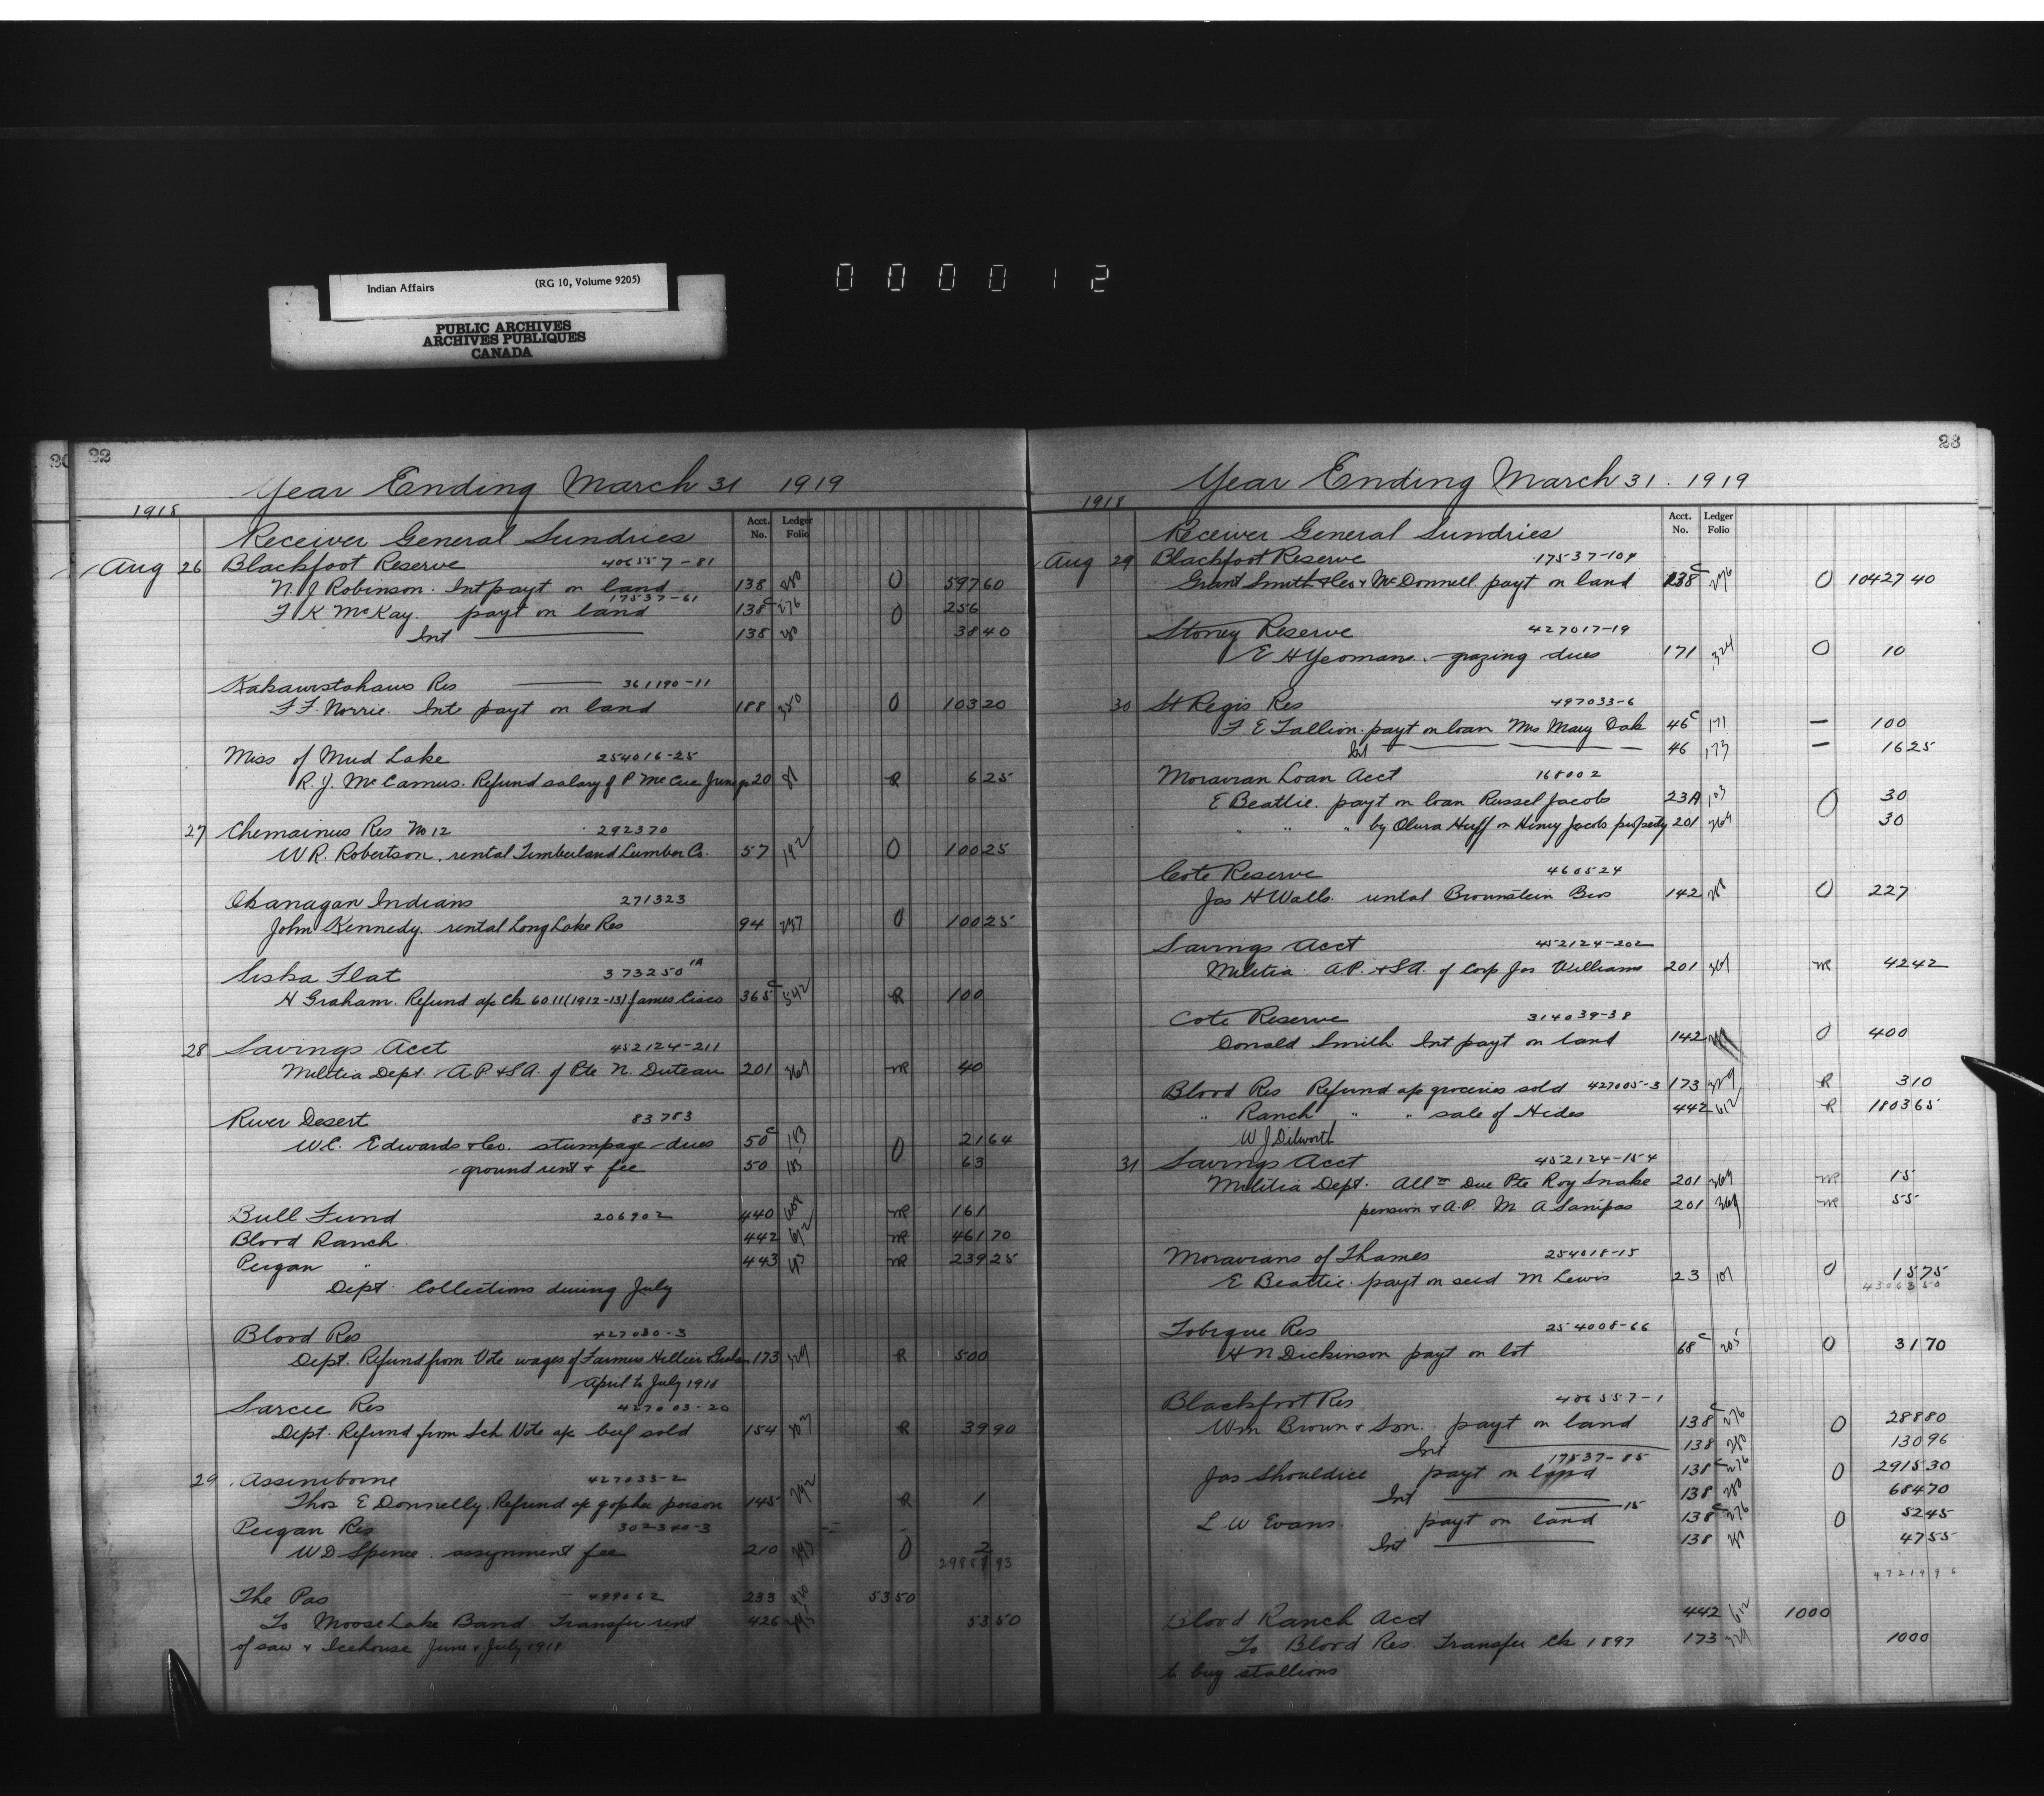 Indian Affairs (RG 10, Volume 9205)
PUBLIC ARCHIVES
ARCHIVES PUBLIQUES
CANADA
000012
22
Year Ending March 31 1919
1918
Acct. No. Ledger Folio
Receiver General Sundries
Aug 26 Blackfoot Reserve 406557-81
N. J Robinson. Int payt on land 138 280 O 597 60
17537-61
F K McKay. payt on land 138c 276 O 256
Int 138 280 38 40
Kakawistahaws Res 361190-11
F F. Norrie. Inte payt on land 188 350 O 103 20
Miss of Mud Lake 254016-25
R. J. McCamus. Refund salary of P McCue June qr 20 R 6 25
27 Chemainus Res No 12 292370
W R. Robertson. rental Timberland Lumber Co. 57 192 O 100 25
Okanagan Indians 271323
John Kennedy. rental Long Lake Res 94 237 O 100 25
Siska Flat 373250 1A
H Graham. Refund a/c Ck 6011 (1912-13) James Cisco 365c 542 R 100
28 Savings Acct 452124-211
Militia Dept. A.P. & S.A. of Pte N. Duteau 201 369 NR 40
River Desert 83783
W.C. Edwards & Co. stumpage dues 50c 183 O 21 64
ground rent & fee 50 183 63
Bull Fund 206902 440 NR 161
Blood Ranch 442 612 NR 461 70
Peigan " 443 NR 239 25
Dept. Collections during July
Blood Res 427030-3
Dept. Refund from Vote wages of Farmers Hellier Graham 173 329 R 500
April to July 1918
Sarcee Res 427003-20
Dept. Refund from Sch Vote a/c beef sold 154 307 R 39 90
29 Assiniboine 427033-2
Thos E Donnelly. Refund a/c gopher poison 145 292 R 1
Peigan Res 302340-3
W D Spence. assignment fee 210 383 O 2
The Pas 499062 233 53 50
To Moose Lake Band. Transfer rent 426 53 50
of saw & Icehouse June & July 1918
23
Year Ending March 31. 1919
1918
Acct. No. Ledger Folio
Receiver General Sundries
Aug 29 Blackfoot Reserve 17537-109
Grant Smith & Co & McDonnell. payt on land 138c 276 O 10427 40
Stoney Reserve 427017-19
E H Yeomans. grazing dues 171 324 O 10
30 St Regis Res 497033-6
F E Tallion. payt on loan Mrs Mary Oak 46c 171 — 100
Int 46 173 — 16 25
Moravian Loan Acct 168002
E Beattie. payt on loan Russel Jacobs 23A 103 O 30
" " " by Olura Huff on Henry Jacobs property 201 369 30
Cote Reserve 460524
Jas H Walls. rental Brounstein Bros 142 288 O 227
Savings Acct 452124-202
Militia A.P. & S.A. of Corp Jos Williams 201 369 NR 42 42
Cote Reserve 314039-38
Donald Smith Int payt on land 142 O 400
Blood Res Refund a/c groceries sold 427005-3 173 329 R 3 10
" Ranch " " sale of Hides 442 612 R 1803 65
W J Dilworth
31 Savings Acct 452124-154
Militia Dept. Allce Due Pte Roy Snake 201 369 NR 15
pension & A.P. M A Sanipas 201 369 NR 55
Moravians of Thames 254018-15
E Beattie. payt on seed M Lewis 23 101 O 15 75
Tobique Res 254008-66
H N Dickinson payt on lot 68c 205 O 31 70
Blackfoot Res 406557-1
Wm Brown & Son. payt on land 138c 276 O 288 80
Int 138 280 130 96
17537-85
Jas Shouldice payt on land 138c 276 O 2915 30
Int 138 280 684 70
15
L W Evans. payt on land 138c 276 O 52 45
Int 138 280 47 55
47214 96
Blood Ranch Acct 442 612 1000
To Blood Res. Transfer Ck 1897 173 329 1000
to buy stallions